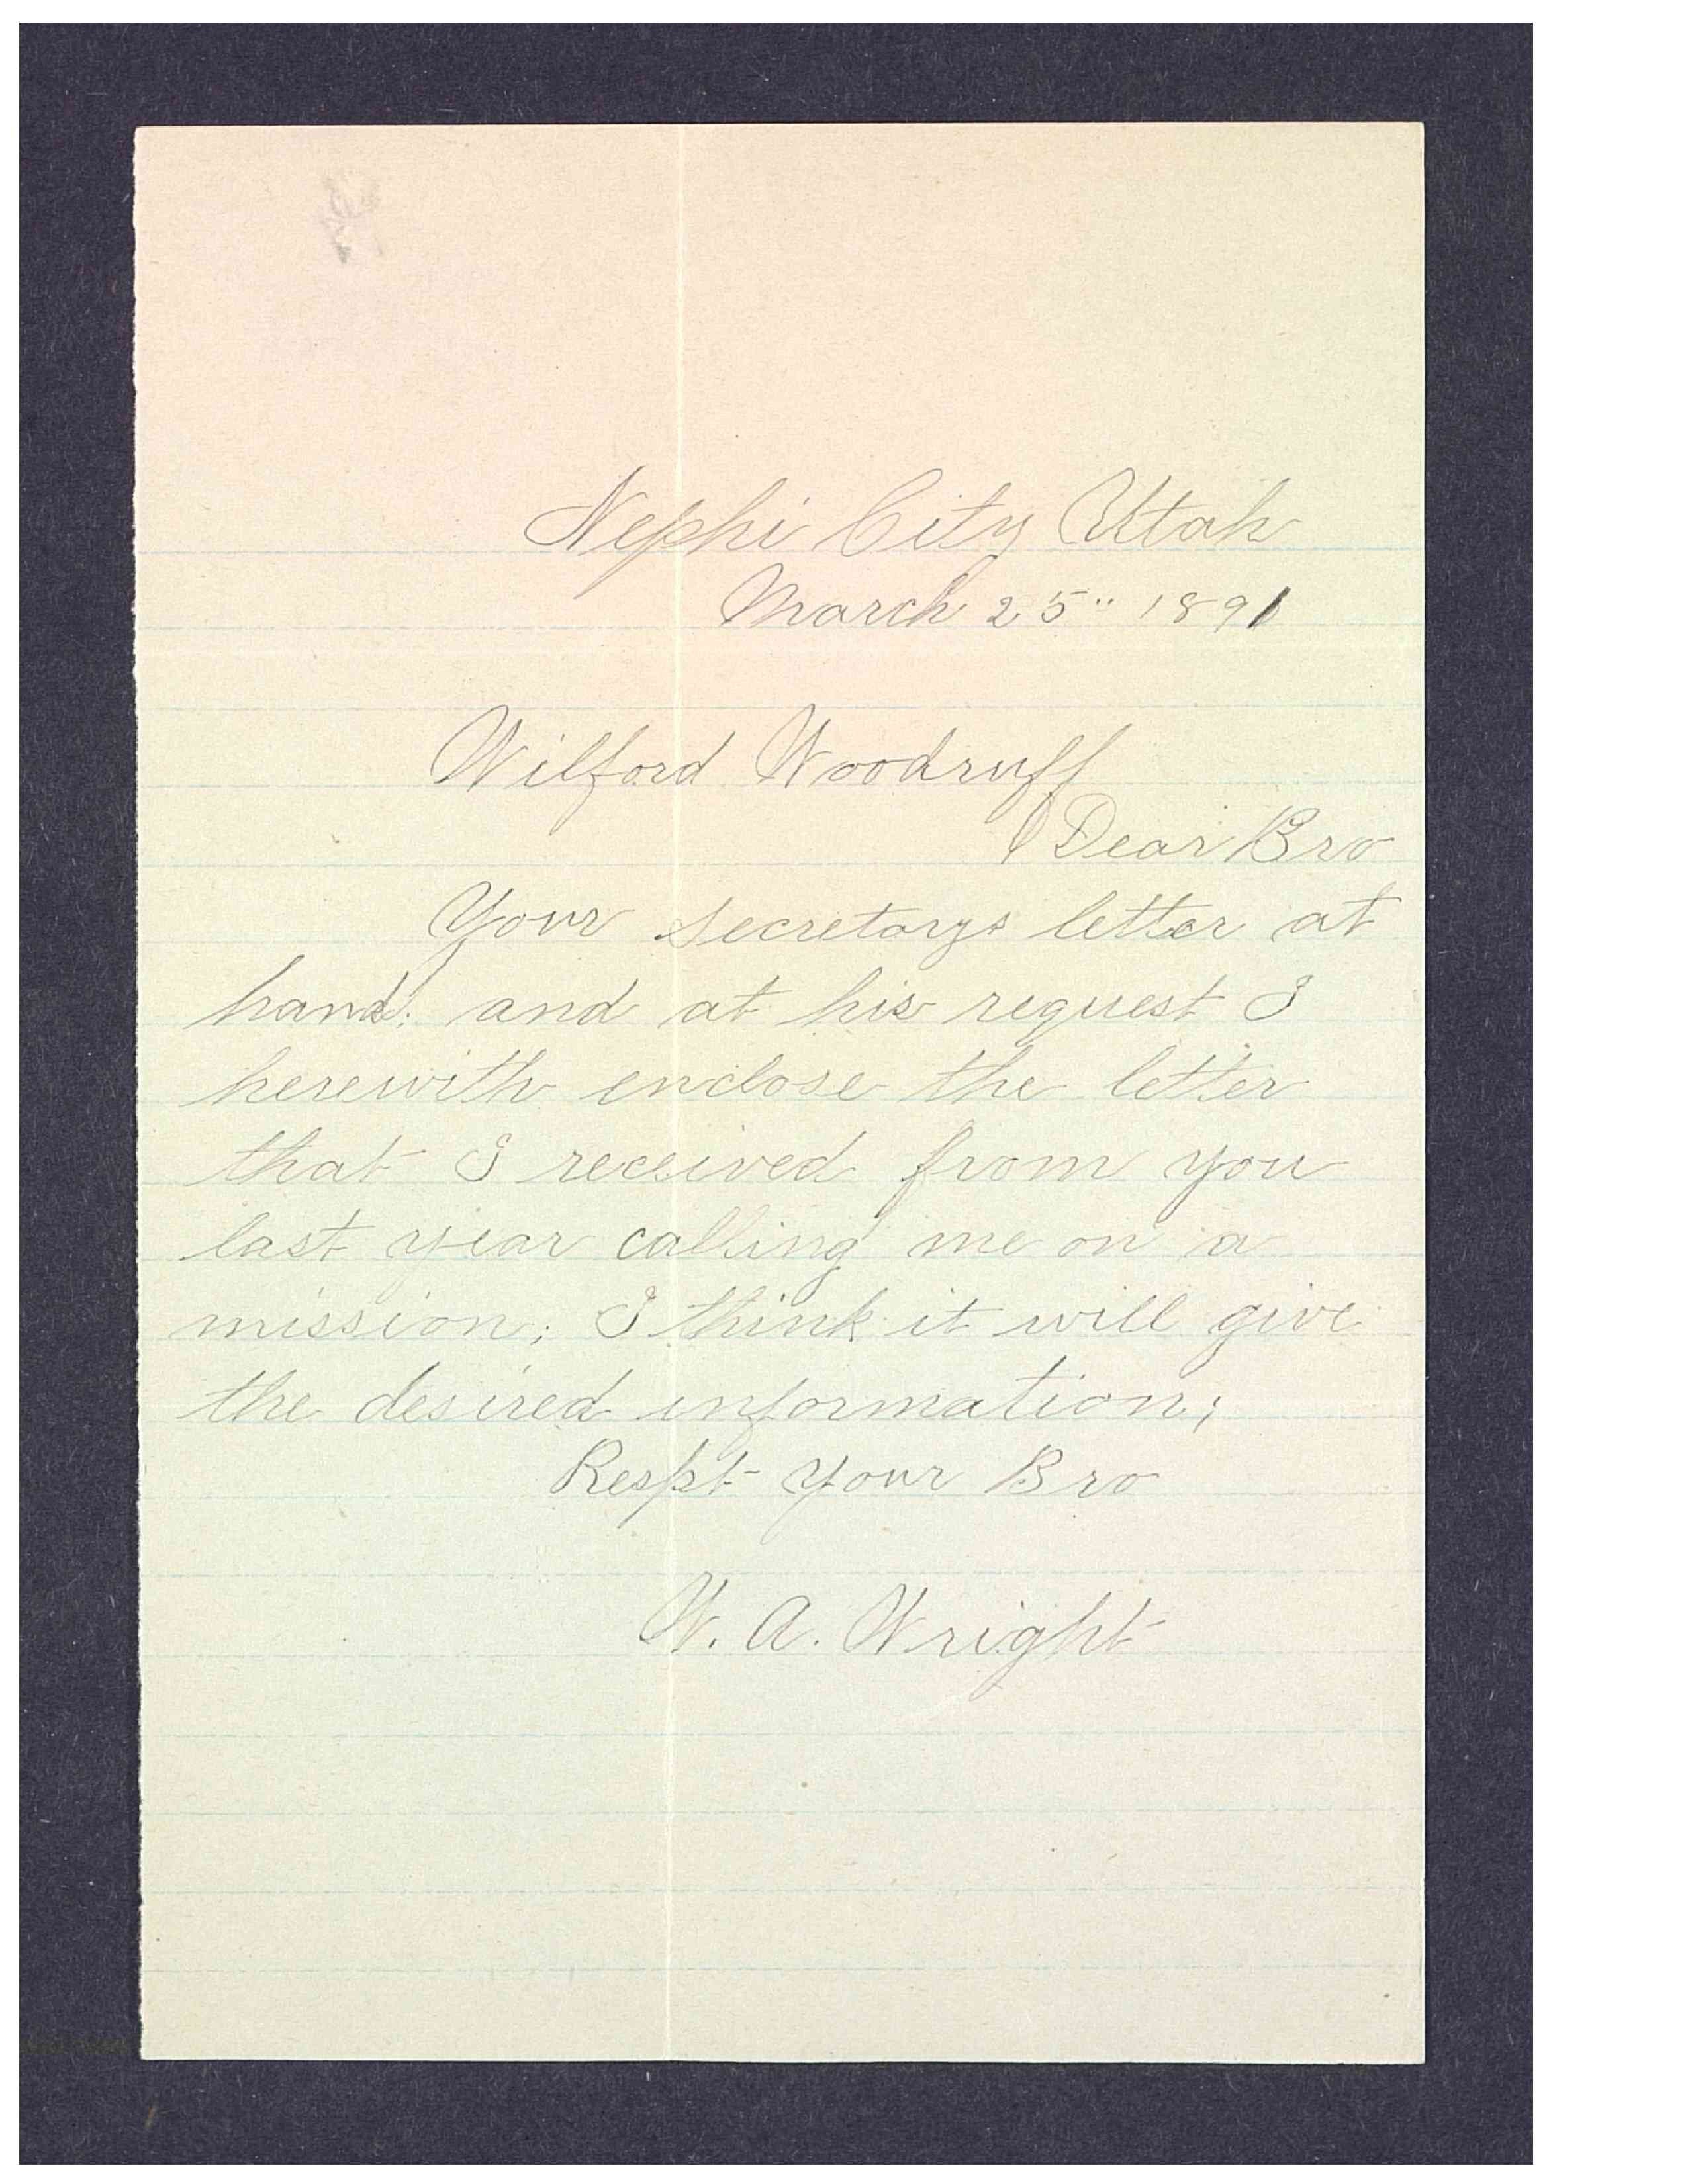 Nephi City Utah
March 25" 1891
Wilford Woodruff
Dear Bro
Your secretarys letter at
hand; and at his request I
herewith enclose the letter
that I received from you
last year calling me on a
mission; I think it will give
the desired information;
Respt Your Bro
W. A. Wright